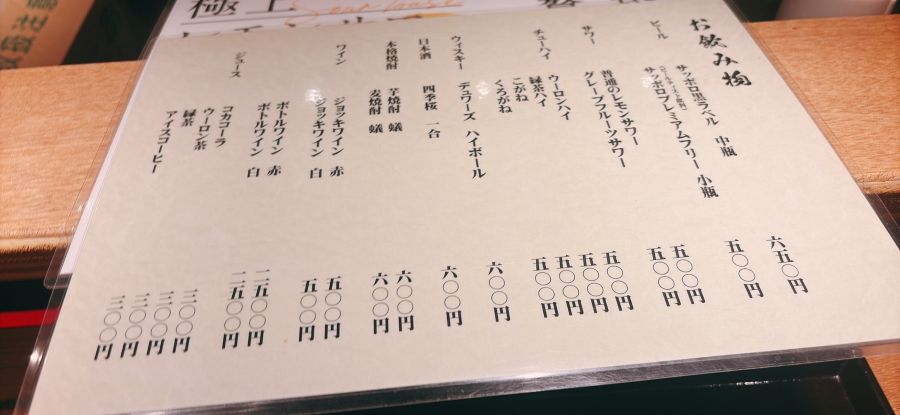 お飲み物
ビール
サッポロ黒ラベル 中瓶 六五〇円
サッポロプレミアムフリー 小瓶 五〇〇円
サワー
普通のレモンサワー 五〇〇円
グレープフルーツサワー 五〇〇円
チューハイ
ウーロンハイ 五〇〇円
緑茶ハイ 五〇〇円
こがね 五〇〇円
くろがね 五〇〇円
ウィスキー
デュワーズ ハイボール 六〇〇円
日本酒
四季桜 一合 六〇〇円
本格焼酎
芋焼酎 蟻 六〇〇円
麦焼酎 蟻 六〇〇円
ワイン
ジョッキワイン 赤 五〇〇円
ジョッキワイン 白 五〇〇円
ボトルワイン 赤 二二五〇〇円
ボトルワイン 白 二二五〇〇円
ジュース
コカコーラ 三〇〇円
ウーロン茶 三〇〇円
緑茶 三〇〇円
アイスコーヒー 三〇〇円
極上